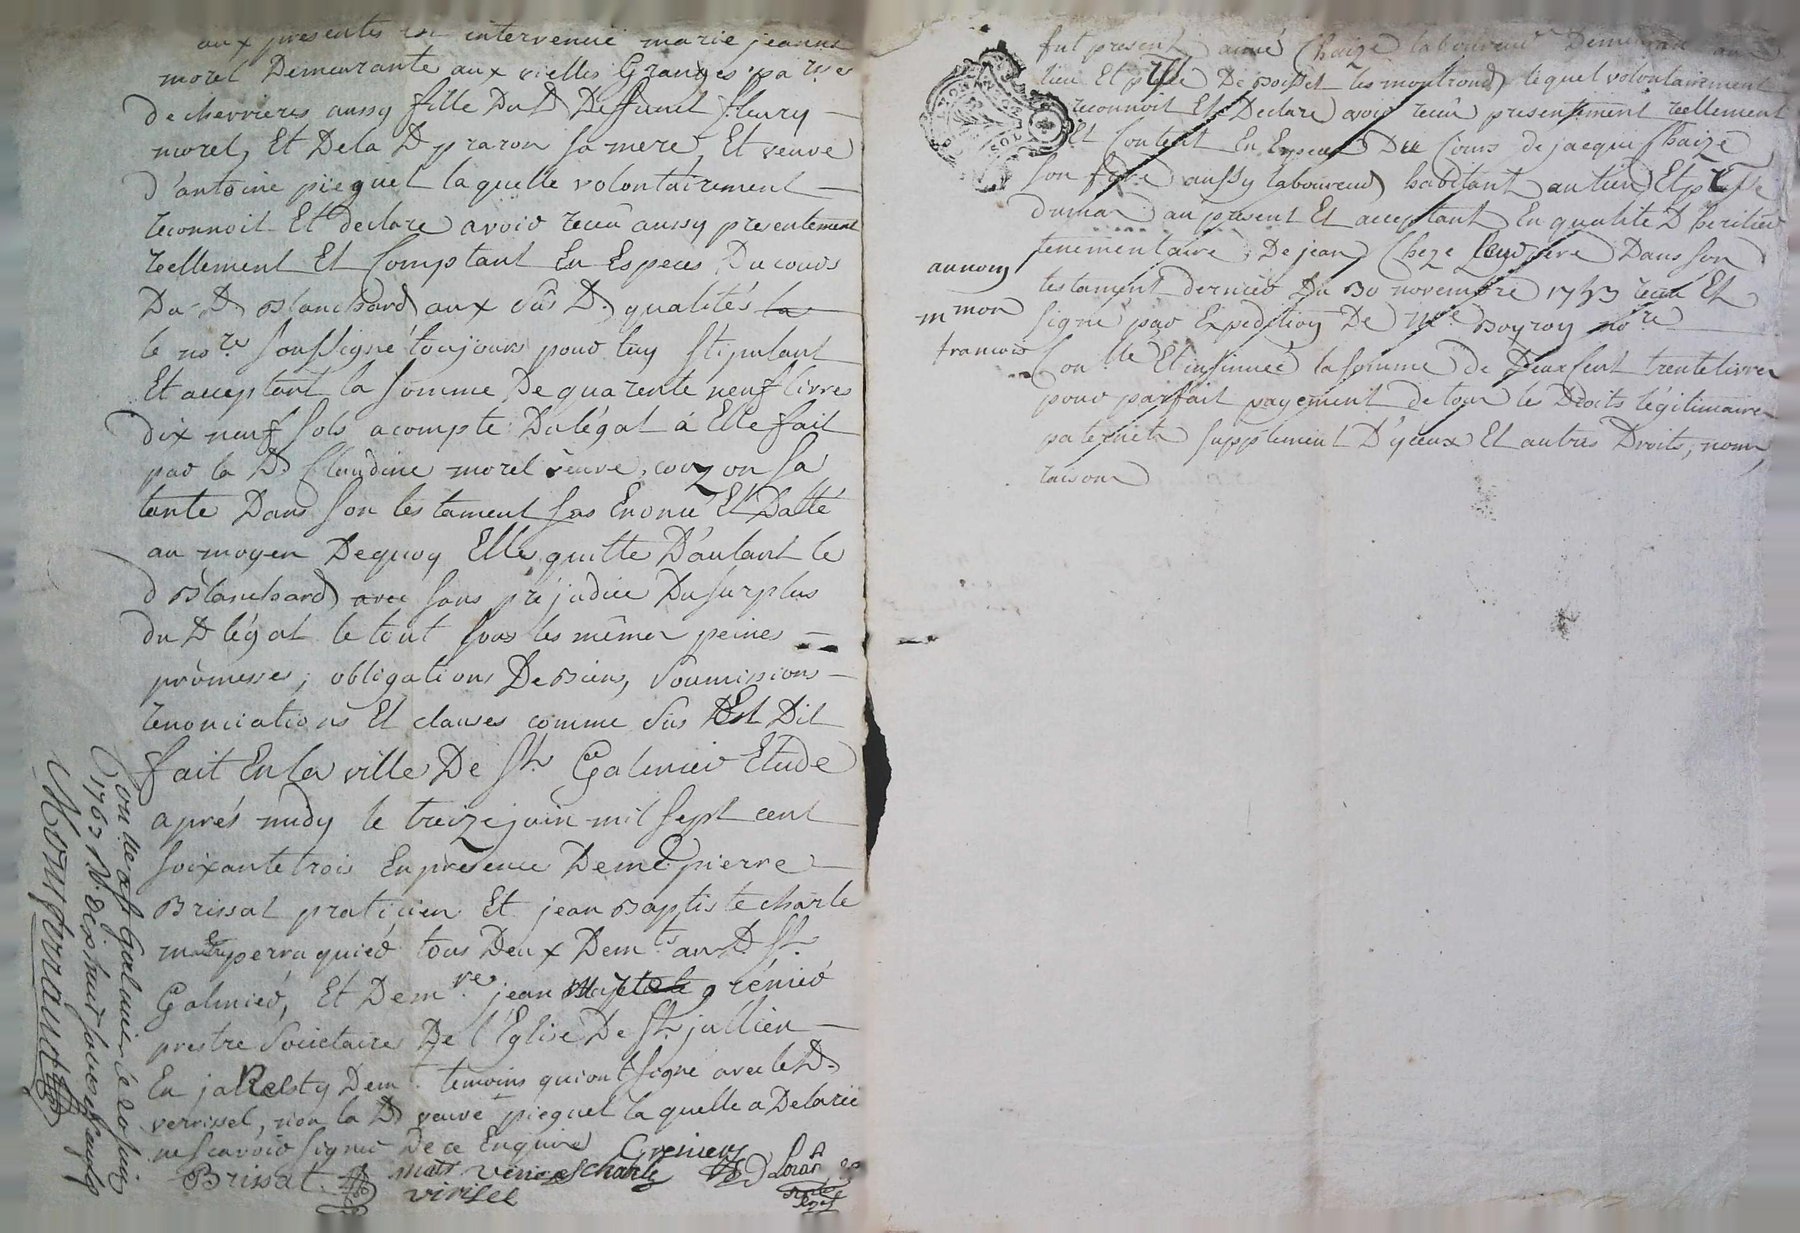 aux presentes est intervenue marie jeanne
morel Demeurante aux vielles Granges parsse
de chevrieres aussy fille Dud Deffunt fleury
morel, Et Dela D praron sa mere, Et veuve
d'antoine pieguet laquelle volontairement
reconnoit Et declare avoir receu aussy presentement
reellement Et Comptant En Especes Du cours
Du D Blanchard aux dts D qualités la
le nore soussigné toujours pour luy stipulant
Et acceptant la somme De quarente neuf livres
dix neuf sols acompte Dulégat á Elle fait
par la D Claudine morel veuve couzon sa
tante Dans son testament sus Enoncé Et Datté
au moyen Dequoy Elle quitte D'autant le
d Blanchard avec sans préjudice Du surplus
du D légat le tout sous les mêmes peines
promesses, obligations De Biens, soumissions
renonciations Et clauses comme sus Est Dit
fait En la ville De St Galmier Etude
aprés midy le treize juin mil sept cent
soixante trois En presence De me pierre
Brissat praticien Et jean Baptiste charle
me perruquier tous Deux Demts aud. St
Galmier, Et Demre jean grénier
prestre societaire De l'Eglise De St jullien
En Demt temoins qui ont signé avec le D
verrisel, non la D veuve pieguet laquelle a Delaré
ne scavoir signer De ce Enquise
Greniery
Brissat
Charle
virisel
Conlle a St Galmier le 20 juin
1763 R. dix huit sols
Montornaud
fut present aimé Chaize laboureur Demeurant au
lieu Et psse De Boisset les montrond lequel volontairement
reconnoit Et Declare avoir receu presentement reellement
Et Contant En Especes Du Cours de jacque Chaize
son frere aussy laboureur habitant au lieu Et psse
au present Et acceptant En qualité D heritier
testementaire De jean Cheze leur pere Dans son
testament dernier Du 30 novembre 1753 receu Et
signé par Expedition De Me Boyron nore
Conlle Et insinuée la somme de Deux Cent trente livres
pour parfait payement de tous les Droits légitimaires
paternels supplement D'yceux Et autres Droits, noms
raisons
au nom
mon
francois